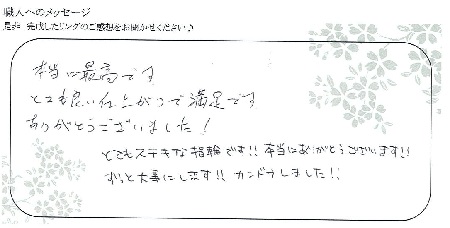 職人へのメッセージ
是非 完成したリングのご感想をお聞かせください♪
本当に最高です
とても良い仕上がりで満足です
ありがとうございました！
とてもステキな指輪です!! 本当にありがとうございます!!
ずっと大事にします!! カンドウしました!!